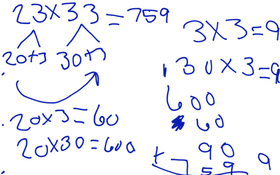 23×33=759
20+3 30+3
20×3=60
20×30=600
3×3=9
30×3=9
600
60
+ 90
59 9